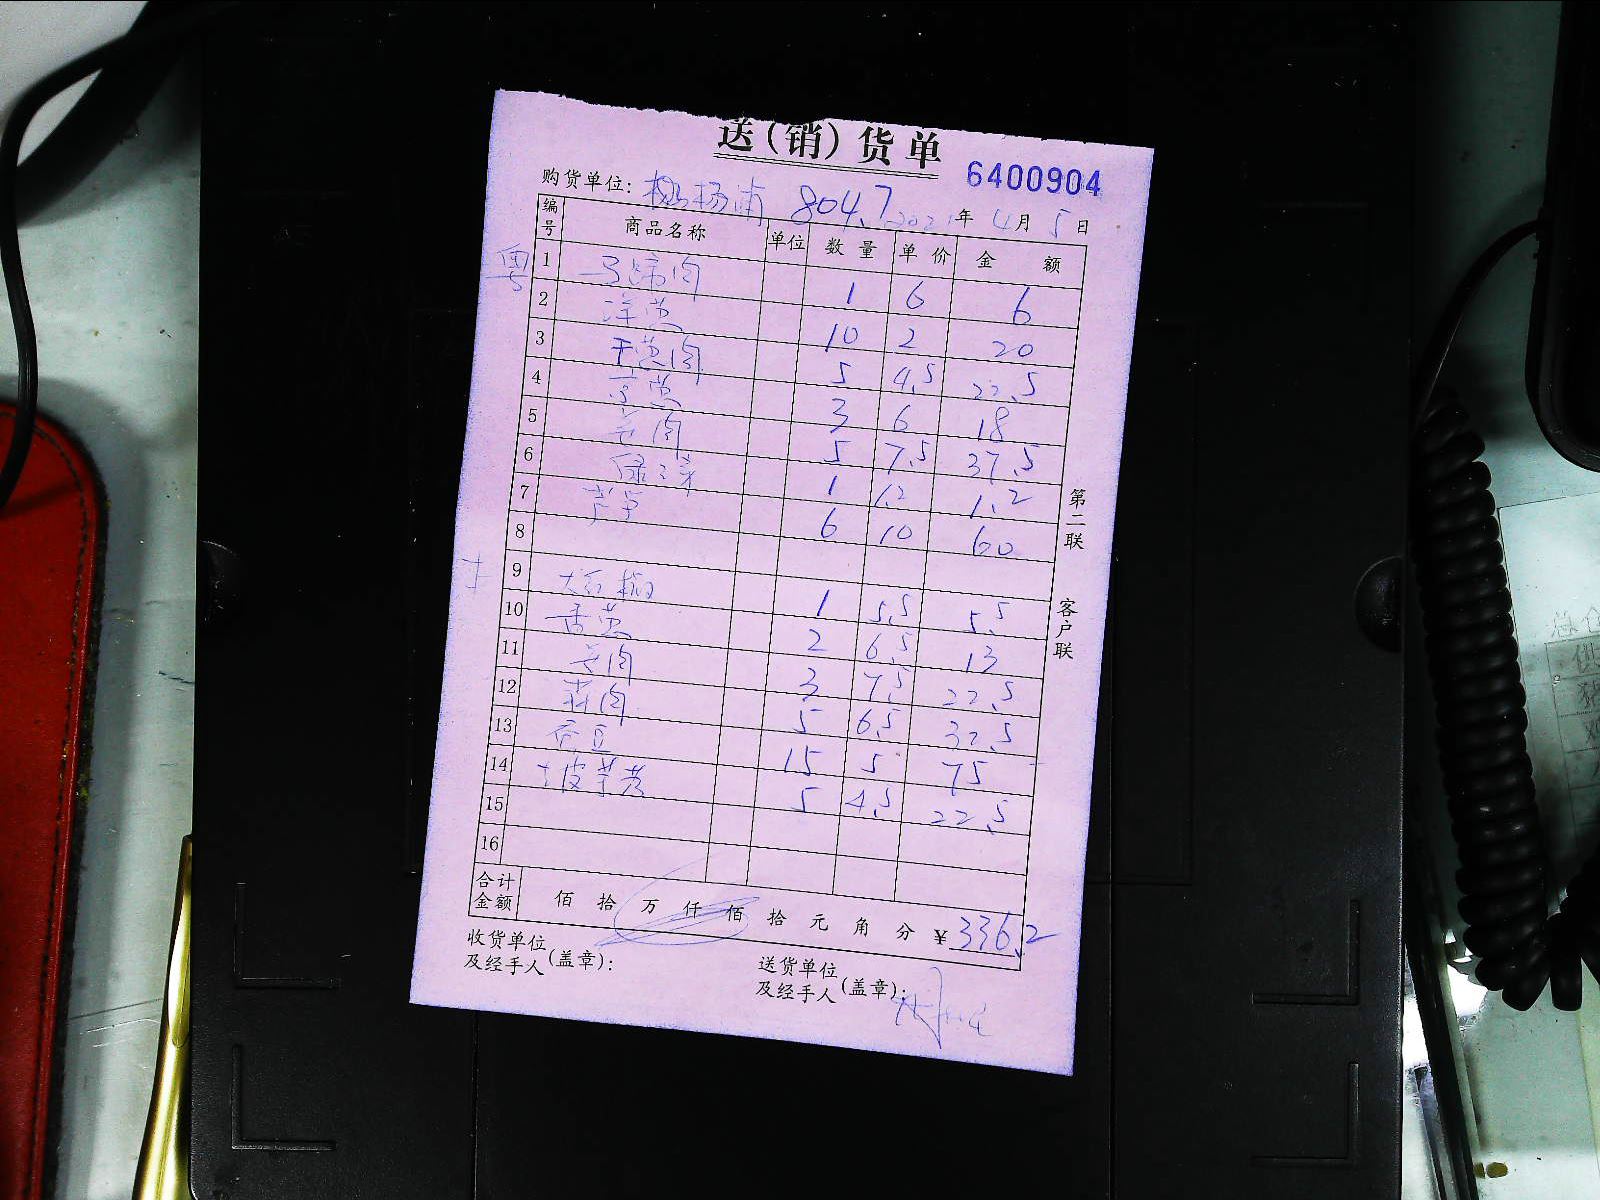 送(销)货单
6400904
购货单位: 杨浦 804.7 2021年4月5日
编号 商品名称 单位 数量 单价 金额
粤
1 马蹄肉 1 6 6
2 洋葱 10 2 20
3 干葱肉 5 4.5 22.5
4 京葱 3 6 18
5 姜肉 5 7.5 37.5
6 1 1.2 1.2
7 芦笋 6 10 60
8
9 大红椒 1 5.5 5.5
10 香葱 2 6.5 13
11 姜肉 3 7.5 22.5
12 蒜肉 5 6.5 32.5
13 15 5 75
14 5 4.5 22.5
15
16
合计金额 佰 拾 万 仟 佰 拾 元 角 分 ¥336.2
收货单位及经手人(盖章):
送货单位及经手人(盖章):
第二联 客户联